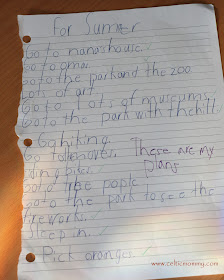 For Summer
Go to nanas house.
Go to omas
Go to the park and the zoo
Lots of art
Go to Lots of museums
Go to the park with the hill
Go hiking.
Go to
These are my
Plans
bikes.
Go to the
Go to the park to see the
firework.
Sleep in.
Pick oranges
www.celticmommy.com